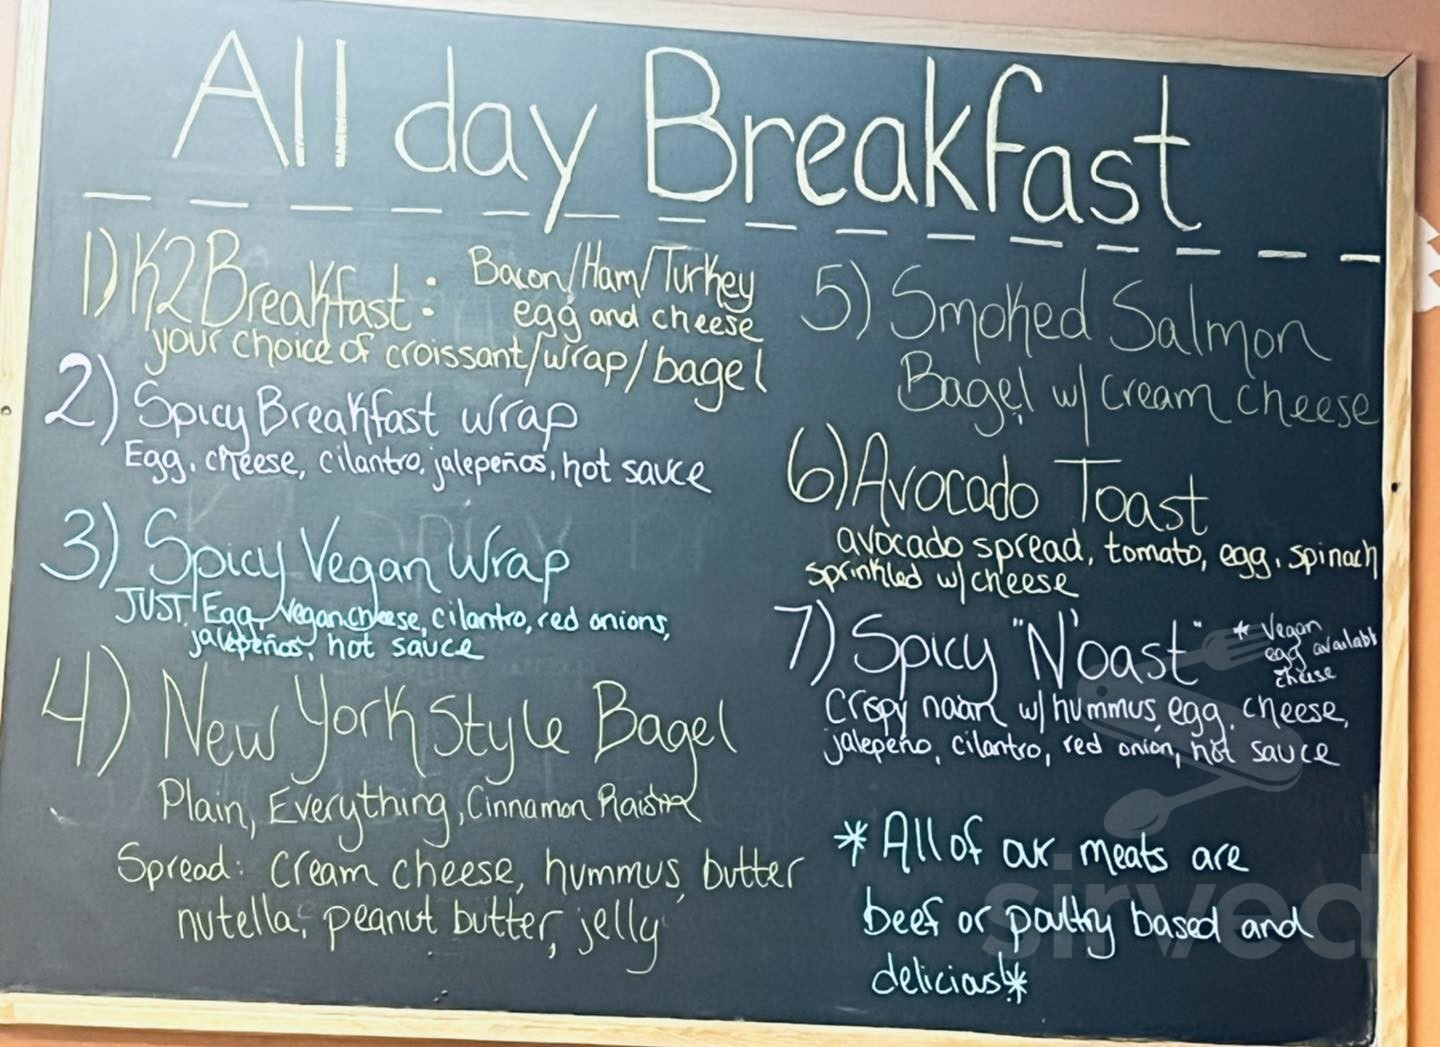 All day Breakfast
1) K2 Breakfast: Bacon/Ham/Turkey
egg and cheese
your choice of croissant/wrap/bagel
2) Spicy Breakfast wrap
Egg, cheese, cilantro, jalepeños, hot sauce
3) Spicy Vegan Wrap
JUST Egg, Vegan cheese, cilantro, red onions,
jalepeños, hot sauce
4) New York Style Bagel
Plain, Everything, Cinnamon Raisin
Spread: cream cheese, hummus, butter
nutella, peanut butter, jelly
5) Smoked Salmon
Bagel w/ cream cheese
6) Avocado Toast
avocado spread, tomato, egg, spinach
sprinkled w/ cheese
7) Spicy "N'oast"
* Vegan
egg available
cheese
Crispy naan w/ hummus, egg, cheese,
jalepeño, cilantro, red onion, hot sauce
*All of our meats are
beef or poultry based and
delicious!*
sirved